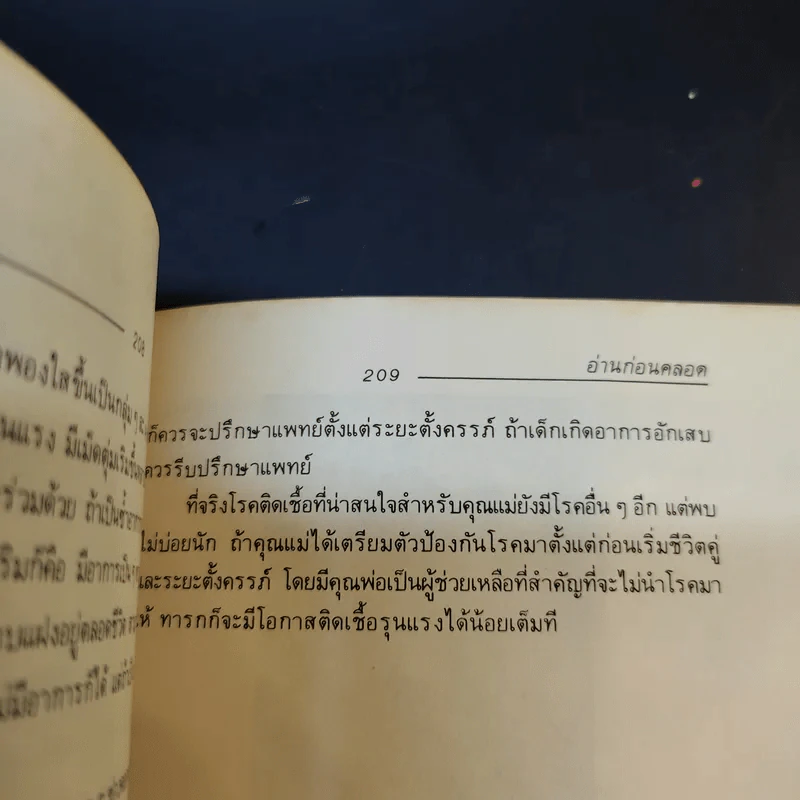 208
พองใสขึ้นเป็นกลุ่ม ๆ
มีเม็ดตุ่มเริ่มขึ้น
ร่วมด้วย ถ้าเป็นซ้ำ
ก็คือ มีอาการเป็น ๆ
แฝงอยู่ตลอดชีวิต
มีอาการก็ได้
209
อ่านก่อนคลอด
ก็ควรจะปรึกษาแพทย์ตั้งแต่ระยะตั้งครรภ์ ถ้าเด็กเกิดอาการอักเสบ
ควรรีบปรึกษาแพทย์
ที่จริงโรคติดเชื้อที่น่าสนใจสำหรับคุณแม่ยังมีโรคอื่น ๆ อีก แต่พบ
ไม่บ่อยนัก ถ้าคุณแม่ได้เตรียมตัวป้องกันโรคมาตั้งแต่ก่อนเริ่มชีวิตคู่
และระยะตั้งครรภ์ โดยมีคุณพ่อเป็นผู้ช่วยเหลือที่สำคัญที่จะไม่นำโรคมา
ให้ ทารกก็จะมีโอกาสติดเชื้อรุนแรงได้น้อยเต็มที